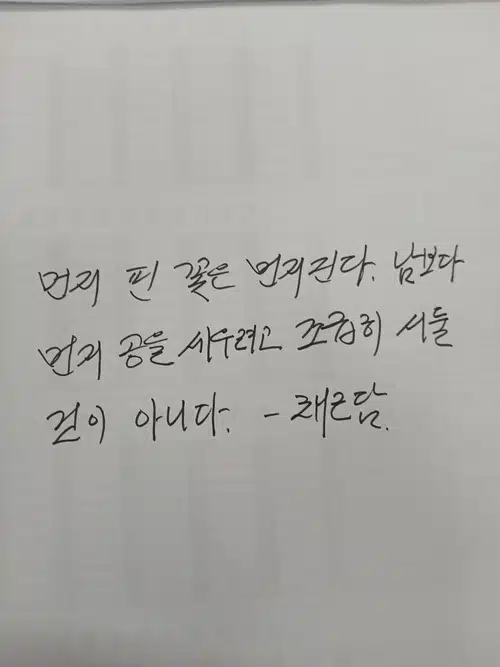 먼저 핀 꽃은 먼저진다. 남보다
먼저 공을 세우려고 조급히 서둘
것이 아니다. - 채근담.